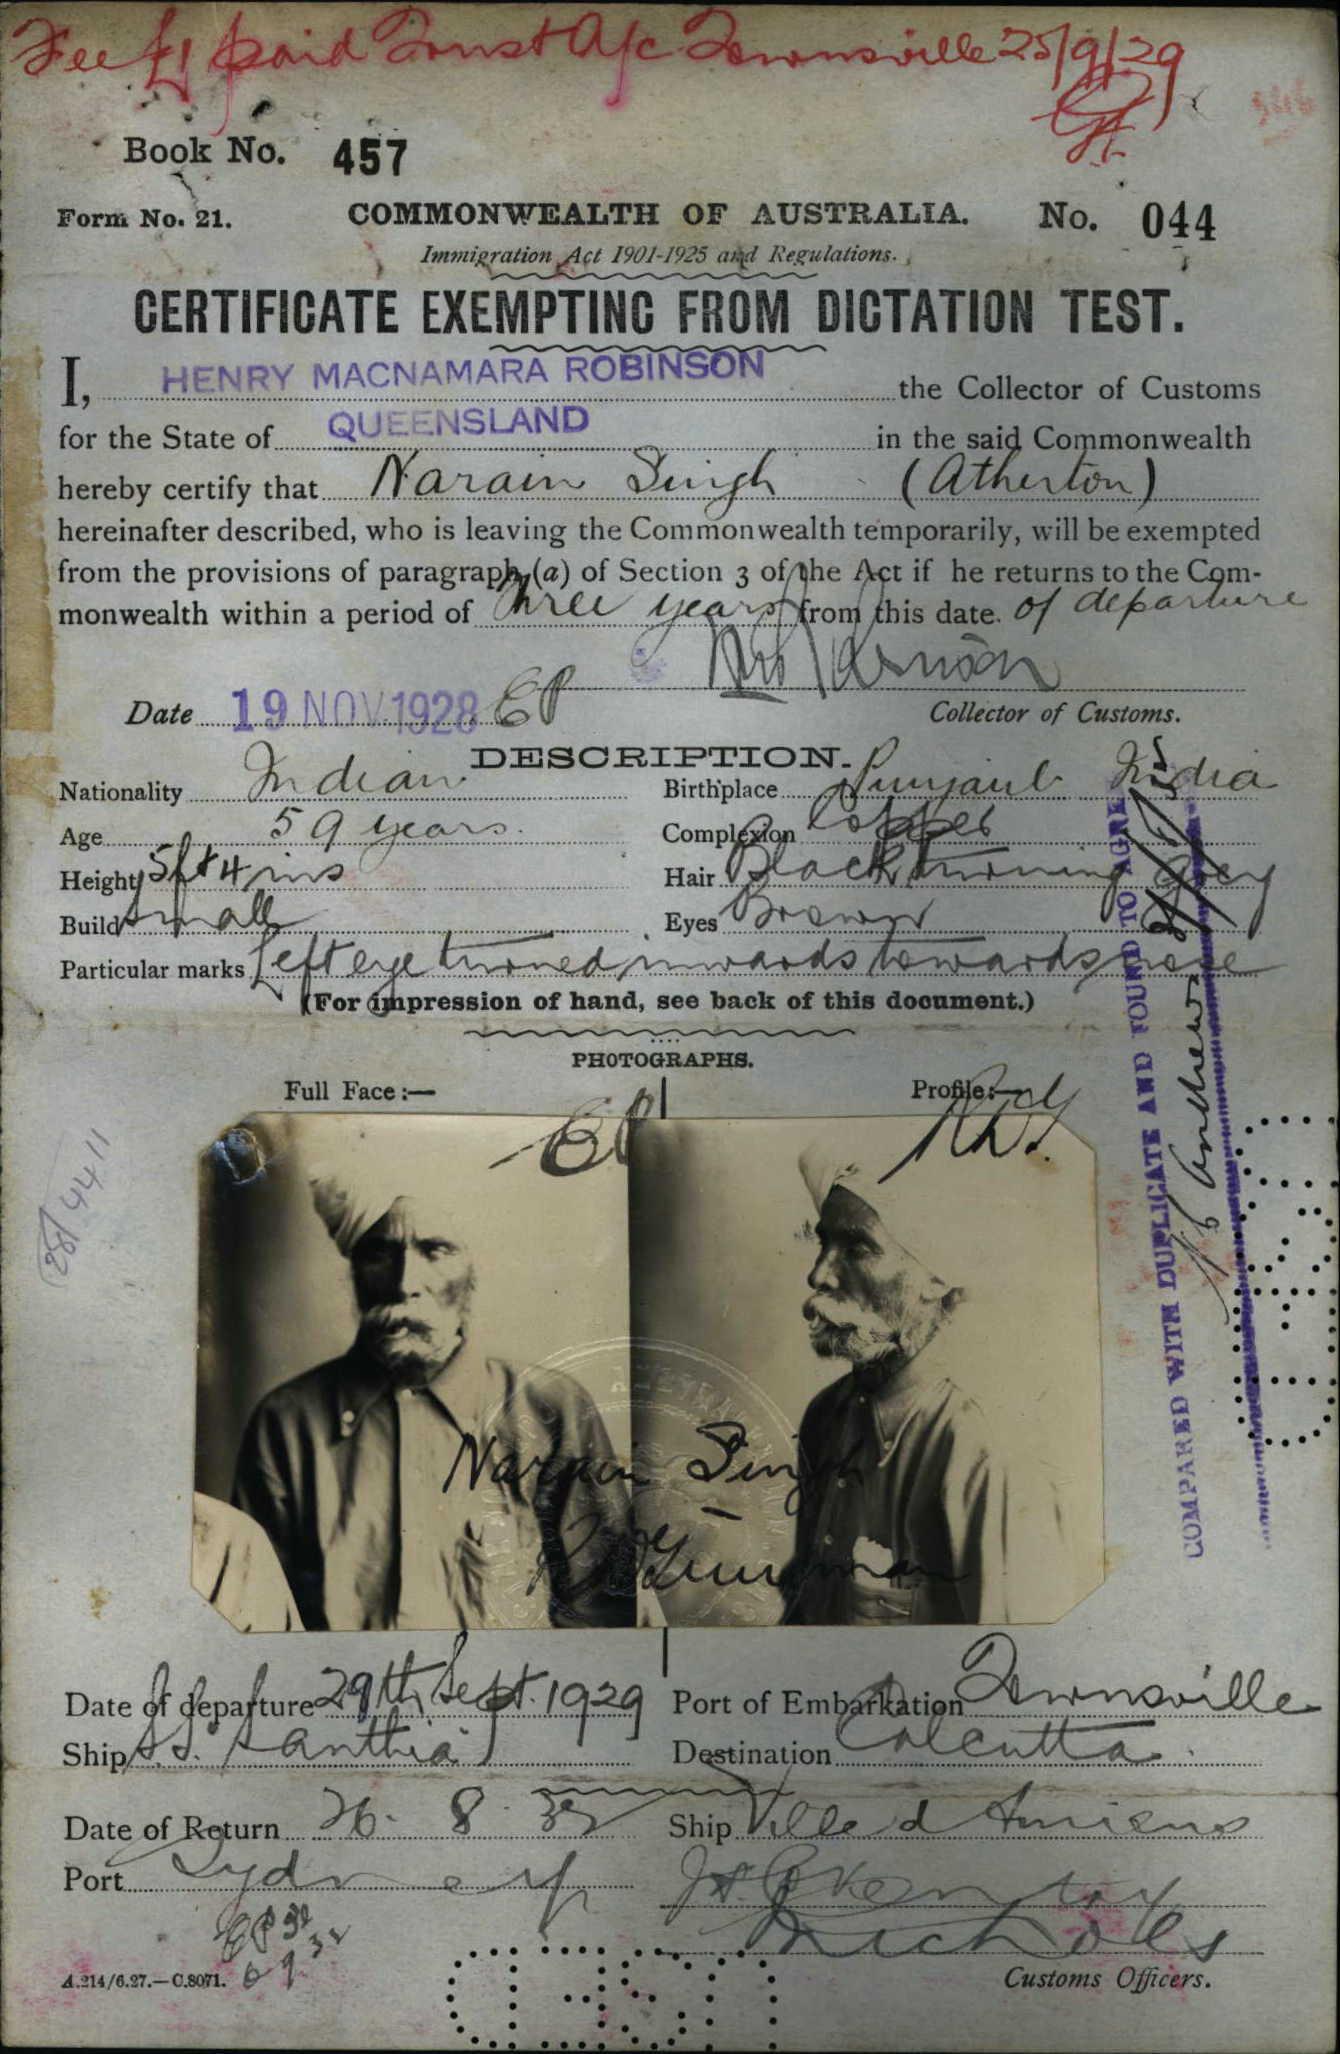 Fee £1 paid Trust A/c Townsville 25/9/29
Book No. 457
Form No. 21. COMMONWEALTH OF AUSTRALIA. No. 044
Immigration Act 1901-1925 and Regulations.
CERTIFICATE EXEMPTING FROM DICTATION TEST.
I, HENRY MACNAMARA ROBINSON the Collector of Customs
for the State of QUEENSLAND in the said Commonwealth
hereby certify that Narain Singh (Atherton)
hereinafter described, who is leaving the Commonwealth temporarily, will be exempted
from the provisions of paragraph (a) of Section 3 of the Act if he returns to the Com-
monwealth within a period of Three years from this date. of departure
Date 19 NOV 1928 EP Collector of Customs.
DESCRIPTION.
Nationality Indian Birthplace Punjaub India
Age 59 years. Complexion Copper
Height 5ft 4 ins Hair Black turning grey
Build Small Eyes Brown
Particular marks Left eye turned inwards towards nose
(For impression of hand, see back of this document.)
PHOTOGRAPHS.
Full Face:— Profile:—
EP
COMPARED WITH DUPLICATE AND FOUND TO AGREE
Andrews
28/4411
Narain Singh
Date of departure 29th Sept. 1929 Port of Embarkation Townsville
Ship S.S. Santhia Destination Calcutta.
Date of Return 26. 8. 32 Ship Ville d Amiens
Port Sydney
Nichols
A.214/6.27.—C.8071. Customs Officers.